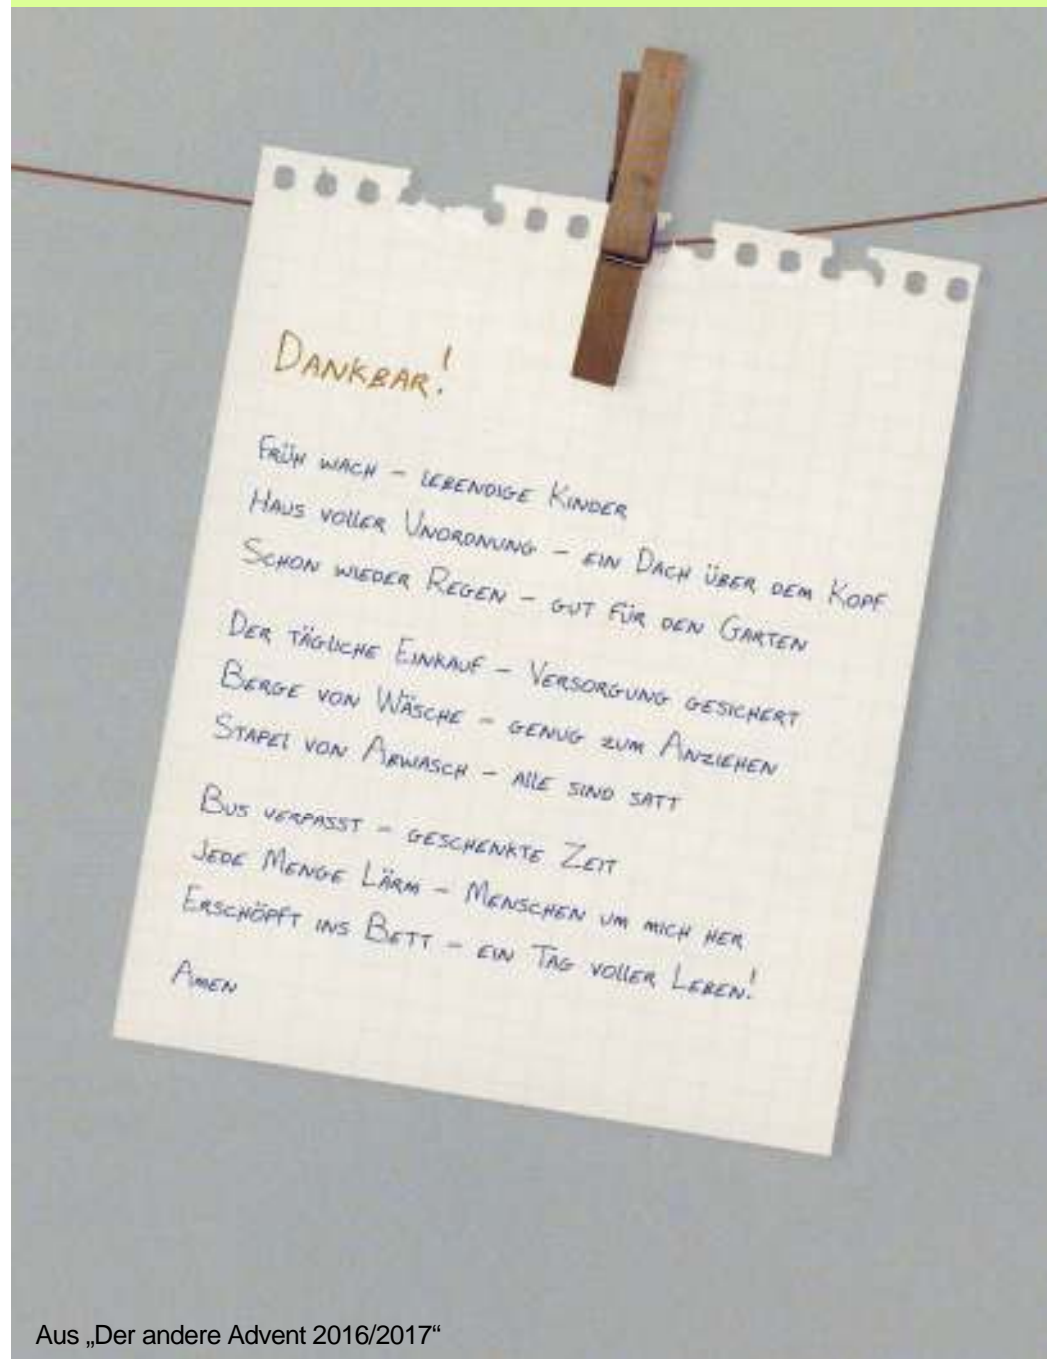 Dankbar!
Früh wach – lebendige Kinder
Haus voller Unordnung – ein Dach über dem Kopf
Schon wieder Regen – gut für den Garten
Der tägliche Einkauf – Versorgung gesichert
Berge von Wäsche – genug zum Anziehen
Stapel von Abwasch – alle sind satt
Bus verpasst – geschenkte Zeit
Jede Menge Lärm – Menschen um mich her
Erschöpft ins Bett – ein Tag voller Leben!
Amen
Aus „Der andere Advent 2016/2017“